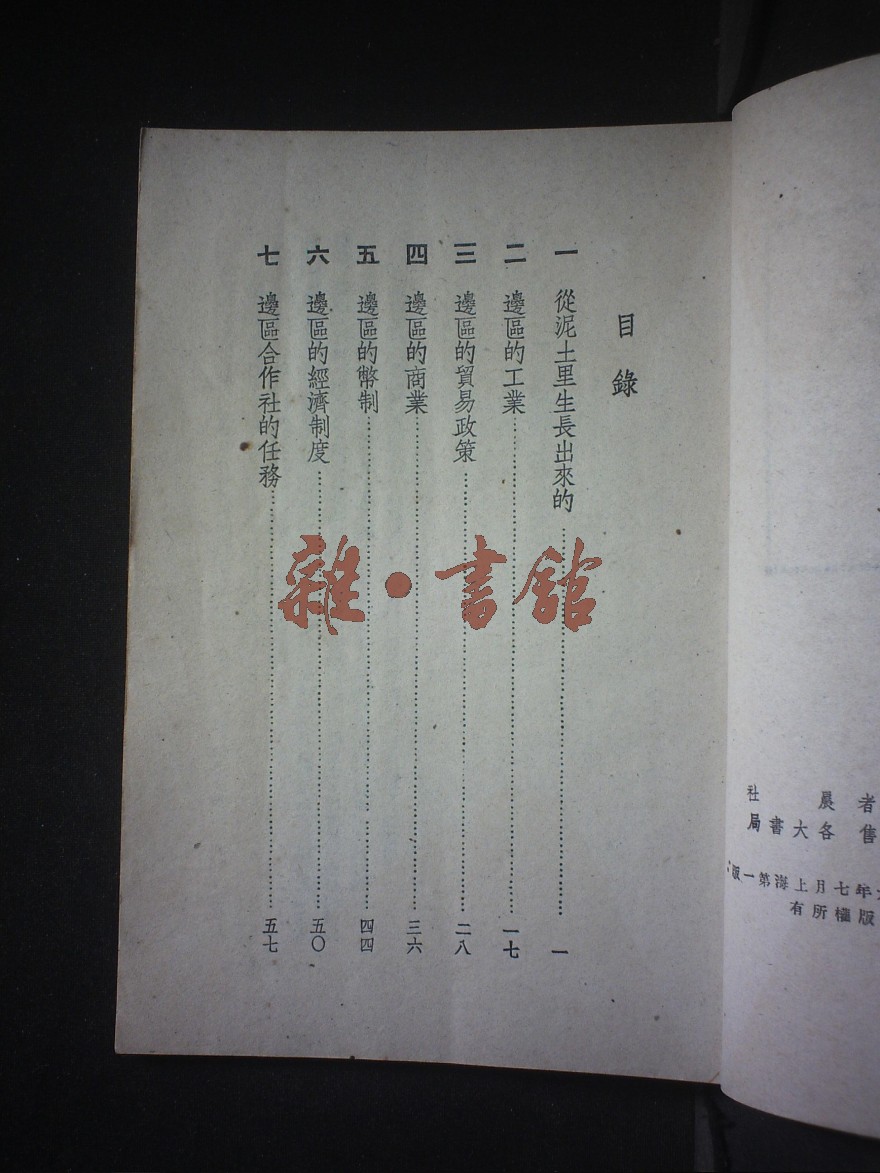 目錄
一 從泥土里生長出來的……一
二 邊區的工業……一七
三 邊區的貿易政策……二八
四 邊區的商業……三六
五 邊區的幣制……四四
六 邊區的經濟制度……五〇
七 邊區合作社的任務……五七
雜·書館
社 晨 者
局書大各 售
版一第海上月七年
有所權版